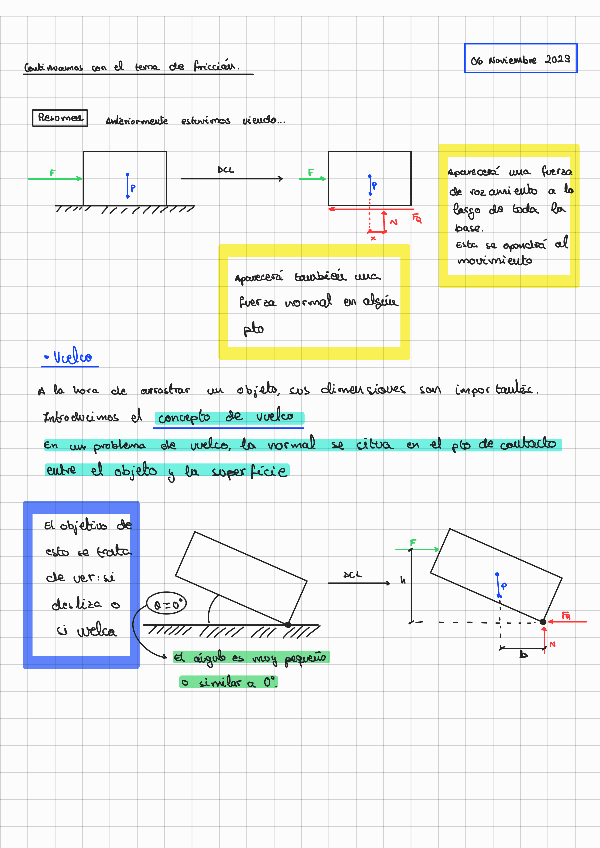 Continuamos con el tema de fricción.
06 Noviembre 2023
Resumen Anteriormente estuvimos viendo...
F
P
DCL
F
P
N
FR
x
Aparecerá una fuerza
de rozamiento a lo
largo de toda la
base.
Esta se opondrá al
movimiento
Aparecerá también una
fuerza normal en algún
pto
• Vuelco
A la hora de arrastrar un objeto, sus dimensiones son importantes.
Introducimos el concepto de vuelco
En un problema de vuelco, la normal se situa en el pto de contacto
entre el objeto y la superficie
El objetivo de
esto se trata
de ver: si
desliza o
si vuelca
θ=0°
El ángulo es muy pequeño
o similar a 0°.
DCL
F
h
P
FR
N
b